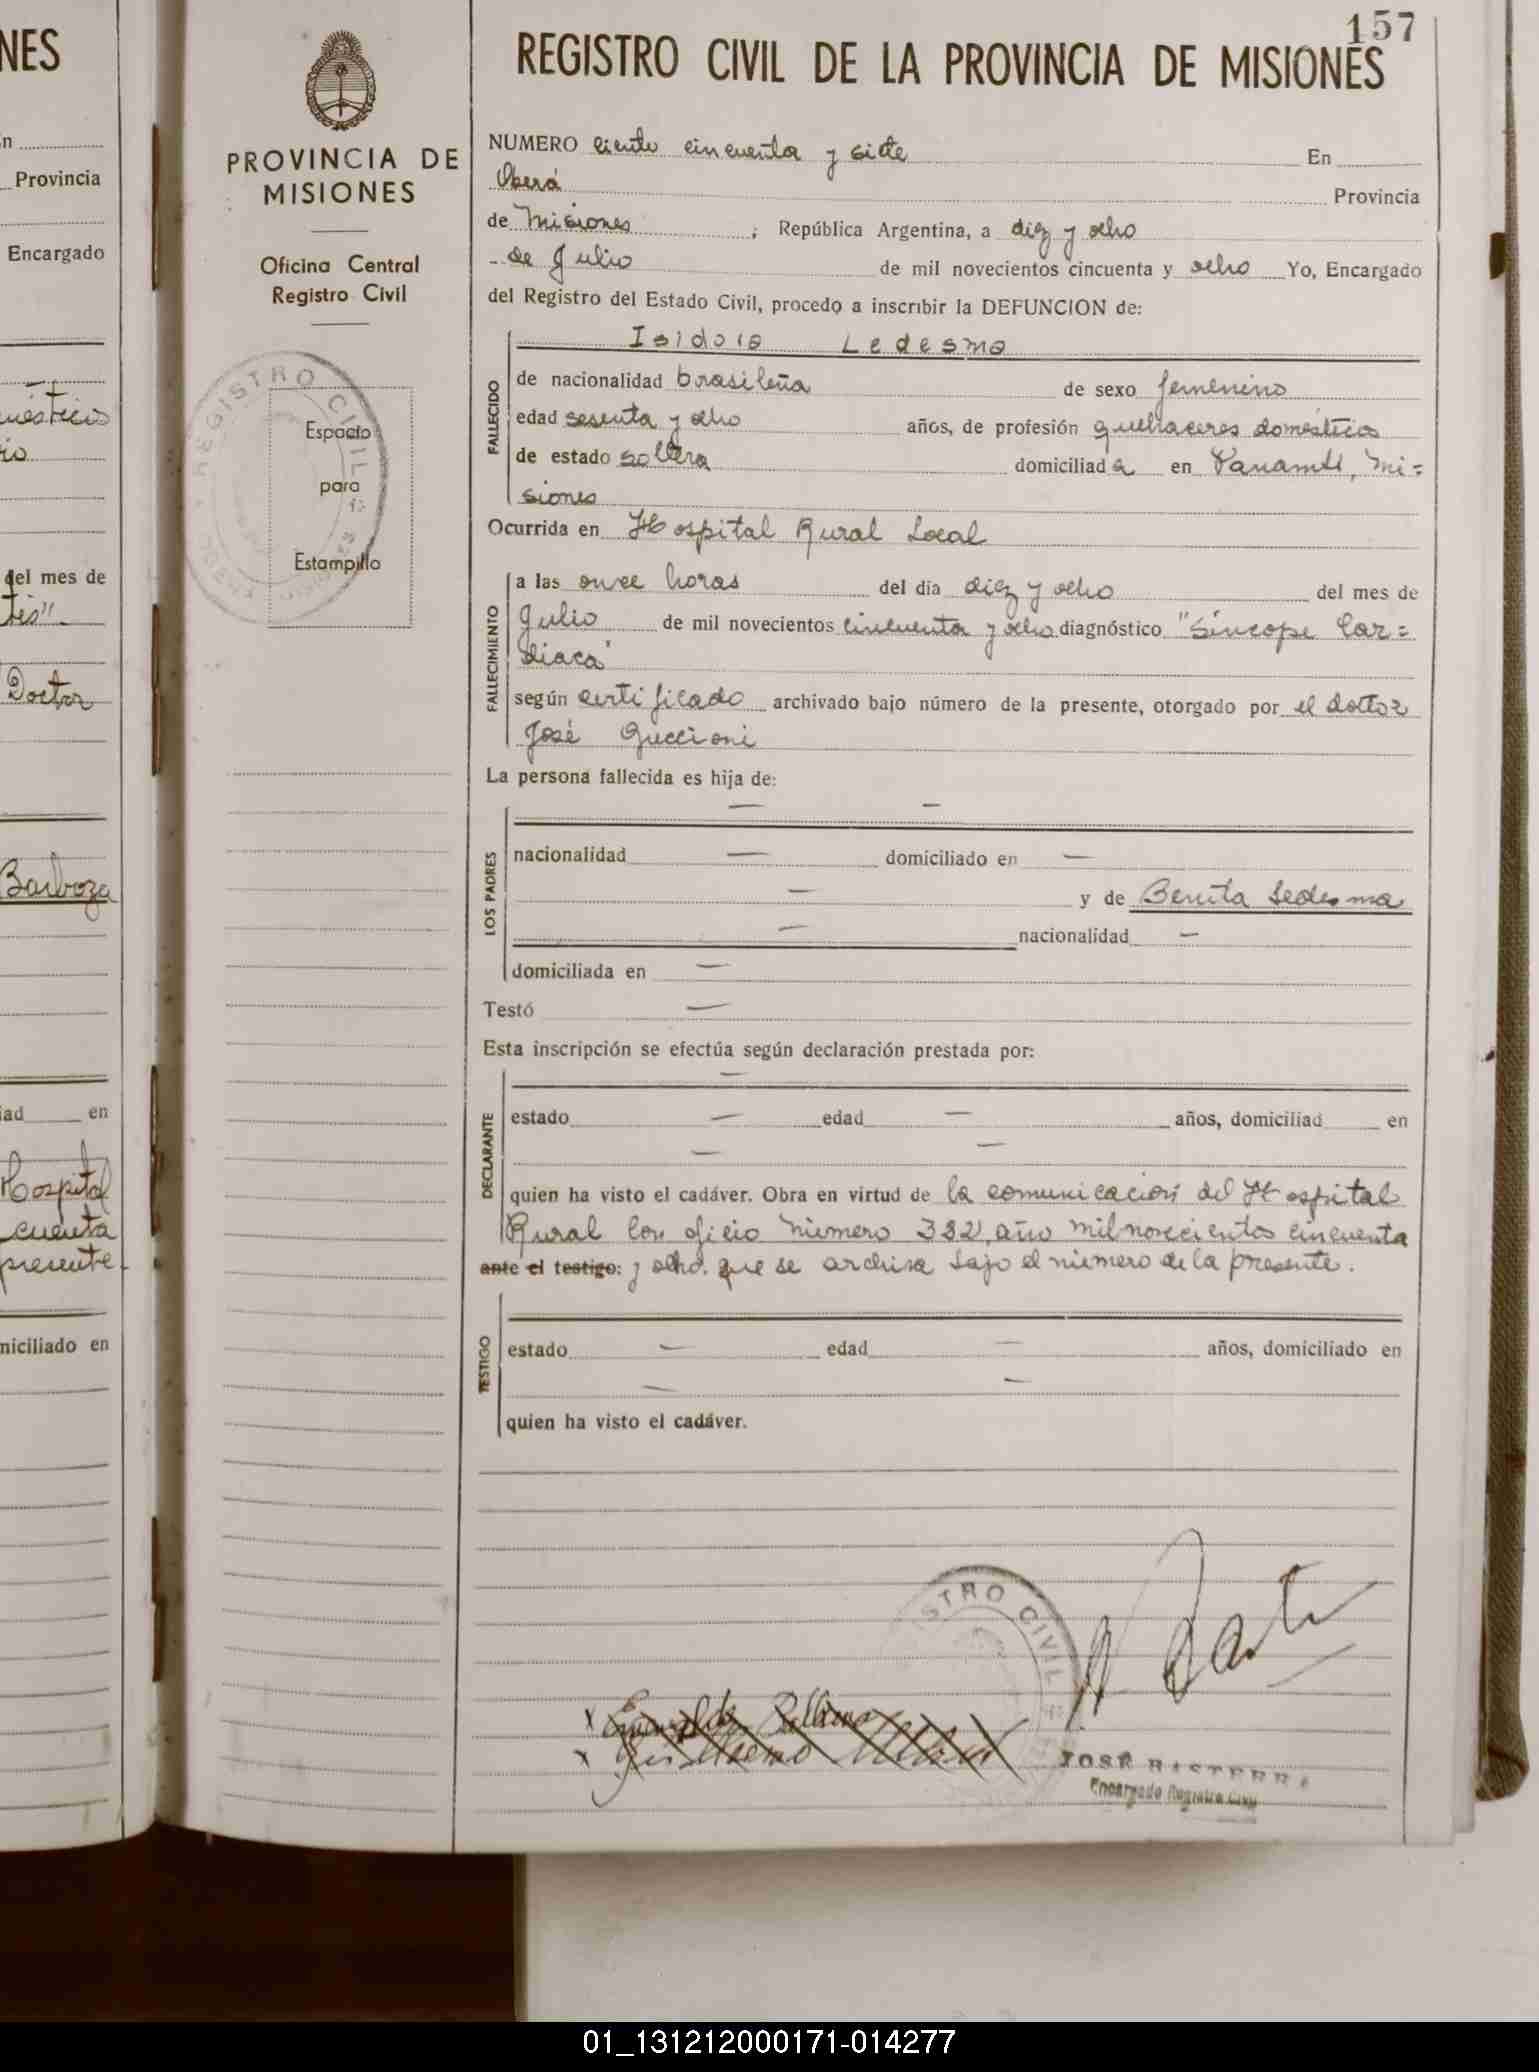 NES
n
Provincia
Encargado
del mes de
Doctor
Barboza
iad en
Hospital
cuenta
presente
niciliado en
PROVINCIA DE
MISIONES
Oficina Central
Registro Civil
REGISTRO CIVIL
Espacio
para
Estampilla
157
REGISTRO CIVIL DE LA PROVINCIA DE MISIONES
NUMERO ciento cincuenta y siete En
Oberá Provincia
de Misiones ; República Argentina, a diez y ocho
de Julio de mil novecientos cincuenta y ocho Yo, Encargado
del Registro del Estado Civil, procedo a inscribir la DEFUNCION de:
FALLECIDO
Isidora Ledesma
de nacionalidad brasileña de sexo femenino
edad sesenta y ocho años, de profesión quehaceres domésticos
de estado soltera domiciliada en Panambí, Mi=
siones
Ocurrida en Hospital Rural Local
FALLECIMIENTO
a las once horas del día diez y ocho del mes de
Julio de mil novecientos cincuenta y ocho diagnóstico "Síncope Car=
diaca"
según certificado archivado bajo número de la presente, otorgado por el doctor
José Guccioni
La persona fallecida es hija de:
LOS PADRES
— —
nacionalidad — domiciliado en —
— y de Benita Ledesma
— nacionalidad —
domiciliada en —
Testó —
Esta inscripción se efectúa según declaración prestada por:
DECLARANTE
—
estado — edad — años, domiciliad en
— —
quien ha visto el cadáver. Obra en virtud de la comunicación del Hospital
Rural con oficio número 332, año mil novecientos cincuenta
ante el testigo: y ocho. que se archiva bajo el número de la presente.
TESTIGO
estado — edad — años, domiciliado en
— —
quien ha visto el cadáver.
REGISTRO CIVIL
JOSE BASTERRA
Encargado Registro Civil
01_131212000171-014277